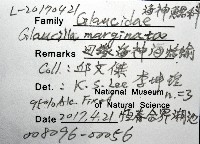 L-20170421 海神鰓科
Family Glaucidae
Glaucilla marginata
Remarks 因緣海神海蛞蝓
Coll.: 邱文傑
Det.: K.S. Lee 李坤瑄
National Museum n=3
95% Alc. Fixed of Natural Science
Date 2017.4.21 恆春合界潮池
008096-00056